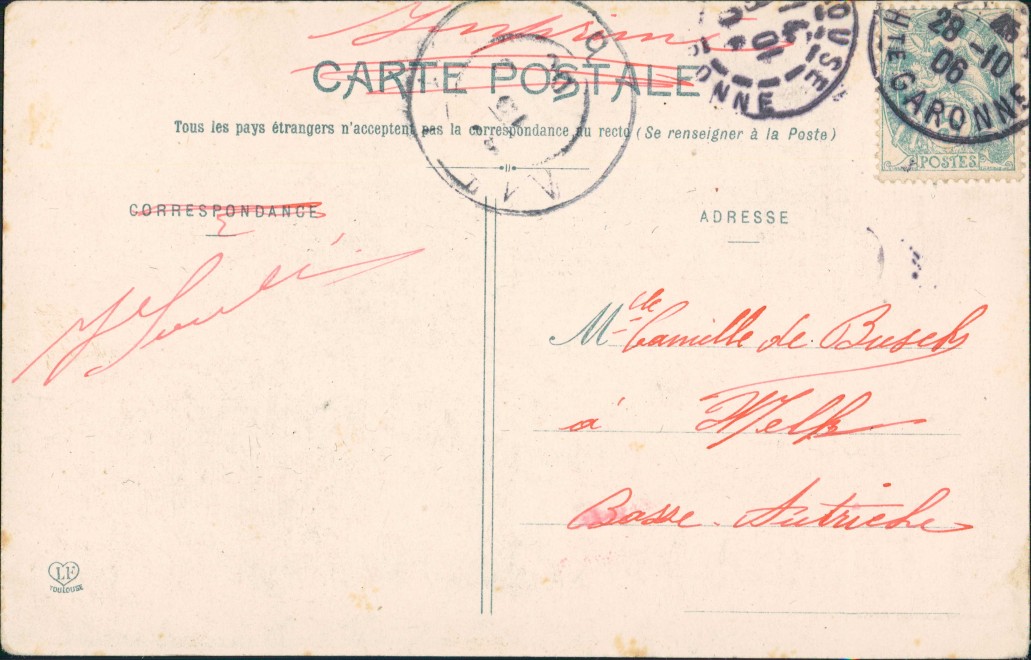 Imprimé
CARTE POSTALE
Tous les pays étrangers n'acceptent pas la correspondance au recto (Se renseigner à la Poste)
28 -10
06
HTE GARONNE
POSTES
CORRESPONDANCE
ADRESSE
Mlle Camille de Busch
à Melk
Basse-Autriche
LF
TOULOUSE